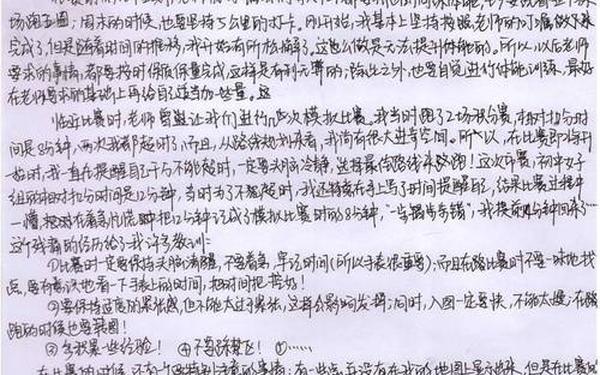 场跑五圈；周末的时候，也要坚持5公里的打卡。刚开始，我基本上坚持按照老师的叮嘱做下来
完成了，但是随着时间的推移，我开始有所松懈了，这怎么做是无法提升体能的。所以，以后老师
要求的事情，都要按时保质保量完成，这样是有利无弊的；除此之外，也要自觉进行体能训练，最好
在老师要求的基础上再给自己适当加些量。
临近比赛时，老师曾让我们进行了几次模拟比赛。我当时跑了2场积分赛，相对扣分时
间是85分钟，两次我都超时了，而且，从路线规划来看，我尚有很大进步空间。所以，在比赛即将开
始时，我一直在提醒自己千万不能超时，一定要头脑冷静，选择最佳路线来跑！这次市赛，初中女子
组的相对扣分时间是120分钟，当时为了不能超时，我还特意在手上写了时间提醒自己，结果比赛过程中
一懵，把120分钟记成了模拟比赛时的85分钟，“一步错步步错”，我提前
这个残酷的经历给了我许多教训：
①比赛时一定要保持头脑清醒，不要着急，牢记时间（所以手表很重要）；而且在跑比赛时不要一味地找
点，要有意识地看一下手表上的时间，把时间把控好！
②要保持适度的紧张感，但不能太过于紧张，这样会影响发挥；同时，入图一定要快，不能太慢；在跑
跑的时候也要读图！
③多积累一些经验！ ④不要踩禁区！ ⑤……
在比赛的时候，还有个要特别注意的事情：有一些点并没有在我的地图上显示出来，但是在比赛